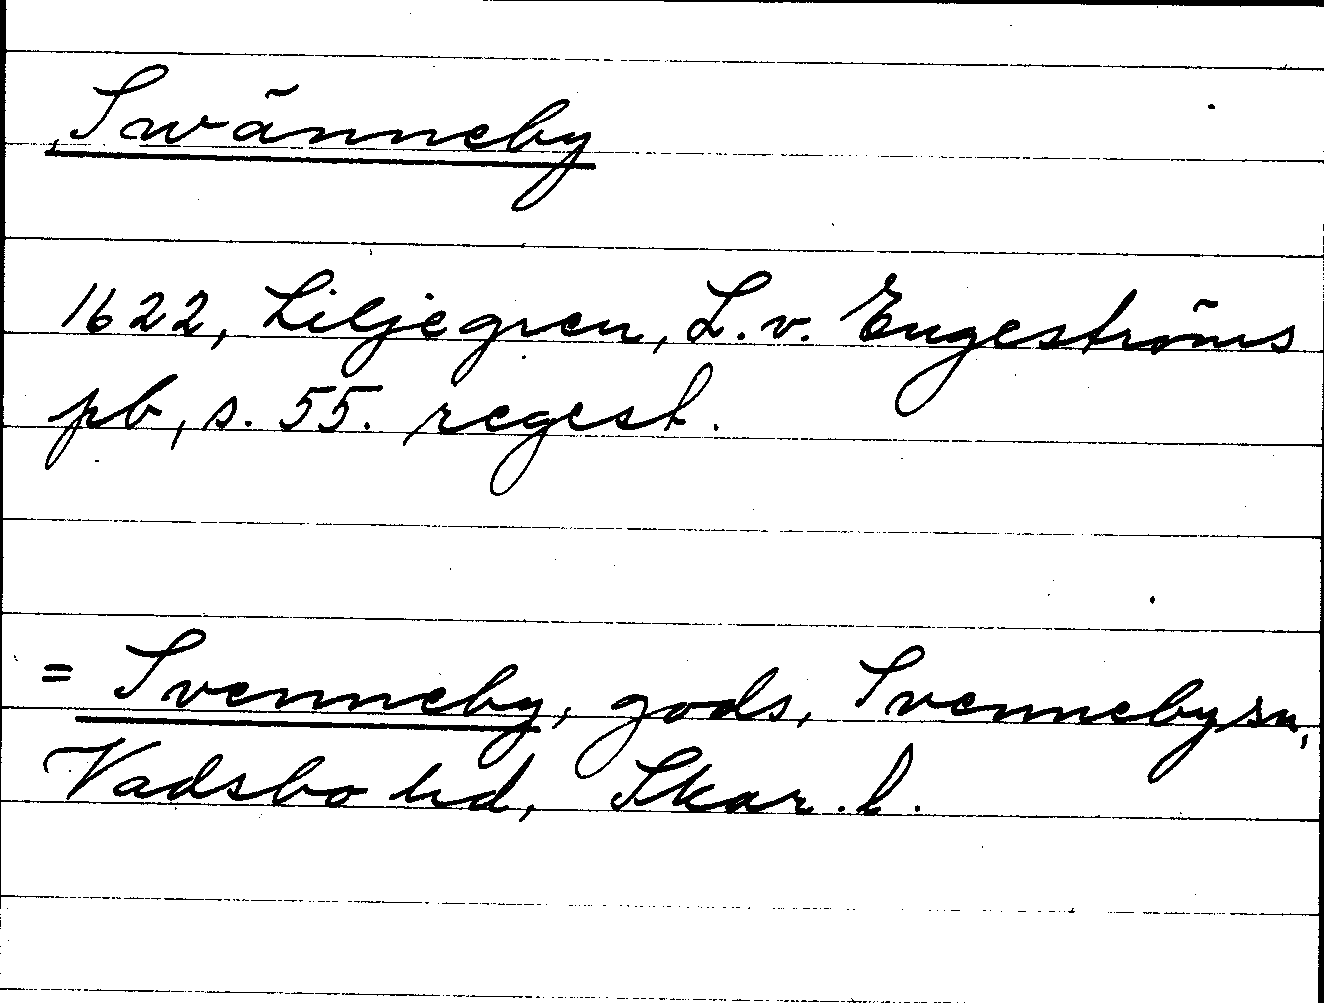 Swänneby
1622, Liljegren, L. v. Engeströms
pb, s. 55. regest.
= Svenneby, gods, Svenneby sn,
Vadsbo hd, Skar. l.